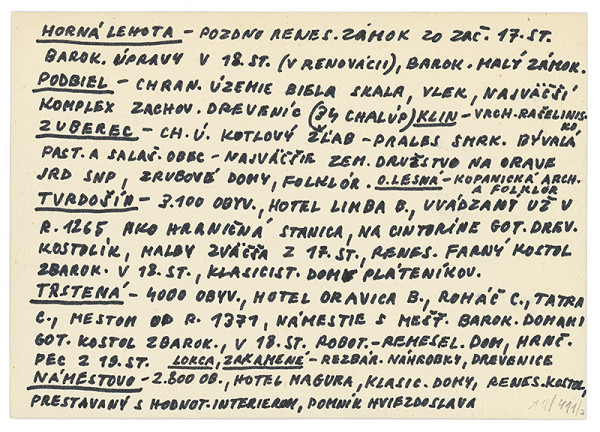 HORNÁ LEHOTA - POZDNO RENES. ZÁMOK ZO ZAČ. 17. ST.
BAROK. ÚPRAVY V 18. ST. (V RENOVÁCII), BAROK. MALÝ ZÁMOK.
PODBIEL - CHRAN. ÚZEMIE BIELA SKALA, VLEK, NAJVÄČŠÍ
KOMPLEX ZACHOV. DREVENÍC (34 CHALÚP) KLIN - VRCH. RAŠELINIS-
KO
ZUBEREC - CH. Ú. KOTLOVÝ ŽĽAB - PRALES SMRK. BÝVALÁ
PAST. A SALAŠ. OBEC - NAJVÄČŠIE ZEM. DRUŽSTVO NA ORAVE
JRD SNP, ZRUBOVÉ DOMY, FOLKLÓR. O. LESNÁ - KOPANICKÁ ARCH.
A FOLKLÓR
TVRDOŠÍN - 3.100 OBYV., HOTEL LIMBA B., UVÁDZANÝ UŽ V
R. 1265 AKO HRANIČNÁ STANICA, NA CINTORÍNE GOT. DREV.
KOSTOLÍK, MALBY ZVÄČŠA Z 17. ST., RENES. FARNÝ KOSTOL
ZBAROK. V 18. ST., KLASICIST. DOMY PLÁTENÍKOV.
TRSTENÁ - 4000 OBYV., HOTEL ORAVICA B., ROHÁČ C., TATRA
C., MESTOM OD R. 1371, NÁMESTIE S MEŠŤ. BAROK. DOMAMI
GOT. KOSTOL ZBAROK., V 18. ST. ROBOT.-REMESEL. DOM, HRNČ.
PEC Z 19. ST. LOKCA, ZAKAMENÉ - REZBÁR. NÁHROBKY, DREVENICE
NÁMESTOVO - 2.800 OB., HOTEL MAGURA, KLASIC. DOMY, RENES. KOSTOL,
PRESTAVANÝ S HODNOT. INTERIEROM, POMNÍK HVIEZDOSLAVA